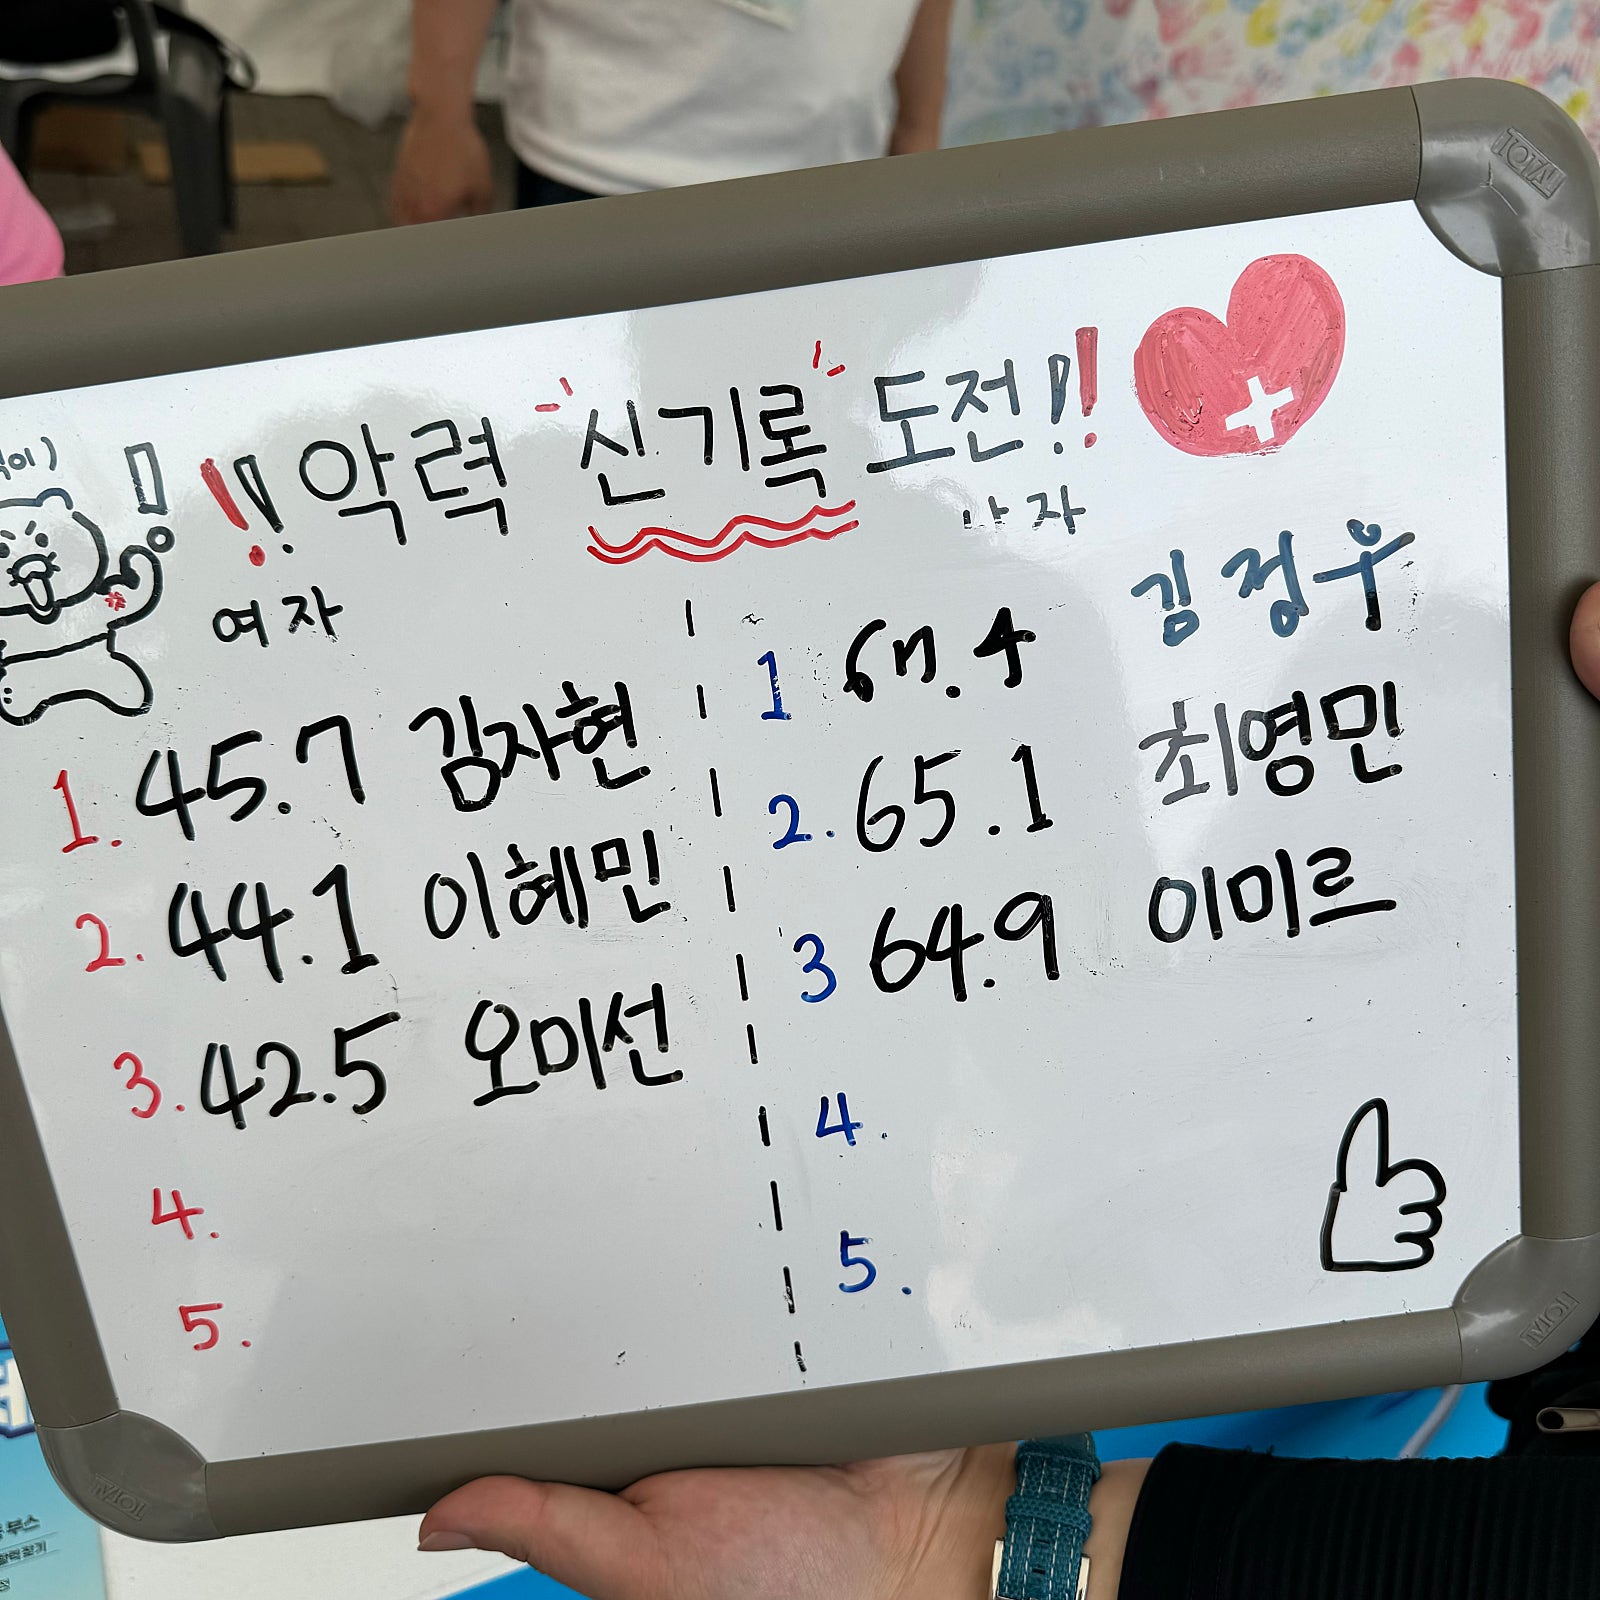 !! 악력 신기록 도전!!
여자
1. 45.7 김자현
2. 44.1 이혜민
3. 42.5 오미선
4.
5.
남자
1 67.4 김정우
2. 65.1 최영민
3 64.9 이미르
4.
5.
TOTAL
TOTAL
TOTAL